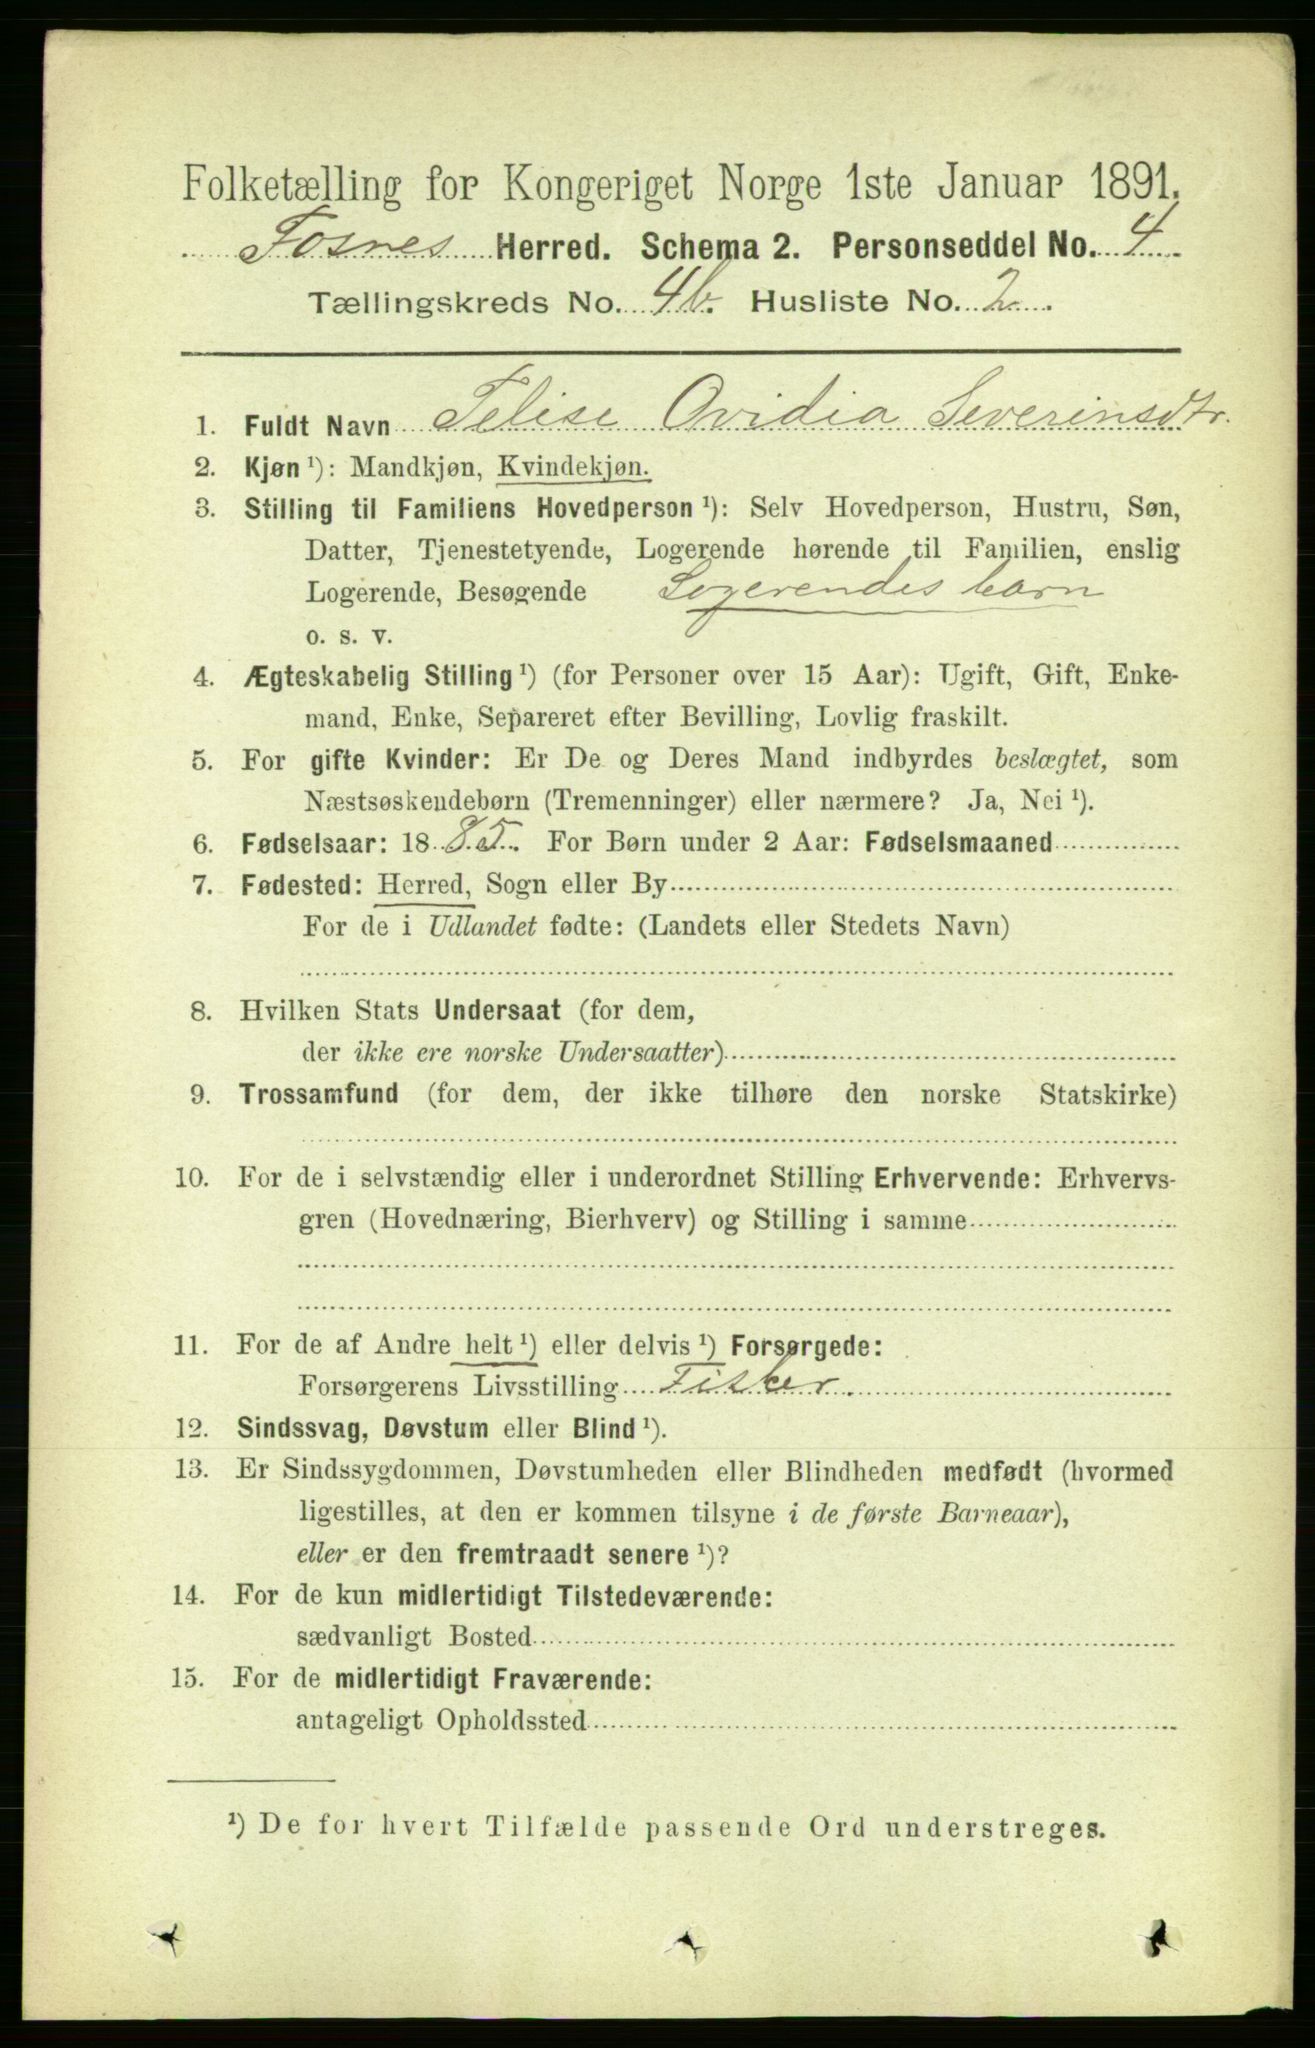 Folketælling for Kongeriget Norge 1ste Januar 1891.
Fosnes Herred. Schema 2. Personseddel No. 4
Tællingskreds No. 4b. Husliste No. 2
1. Fuldt Navn Felise Ovidia Severinsdtr.
2. Kjøn ¹): Mandkjøn, Kvindekjøn.
3. Stilling til Familiens Hovedperson ¹): Selv Hovedperson, Hustru, Søn,
Datter, Tjenestetyende, Logerende hørende til Familien, enslig
Logerende, Besøgende Logerendes barn
o. s. v.
4. Ægteskabelig Stilling ¹) (for Personer over 15 Aar): Ugift, Gift, Enke-
mand, Enke, Separeret efter Bevilling, Lovlig fraskilt.
5. For gifte Kvinder: Er De og Deres Mand indbyrdes beslægtet, som
Næstsøskendebørn (Tremenninger) eller nærmere? Ja, Nei ¹).
6. Fødselsaar: 1885. For Børn under 2 Aar: Fødselsmaaned
7. Fødested: Herred, Sogn eller By
For de i Udlandet fødte: (Landets eller Stedets Navn)
8. Hvilken Stats Undersaat (for dem,
der ikke ere norske Undersaatter)
9. Trossamfund (for dem, der ikke tilhøre den norske Statskirke)
10. For de i selvstændig eller i underordnet Stilling Erhvervende: Erhvervs-
gren (Hovednæring, Bierhverv) og Stilling i samme
11. For de af Andre helt ¹) eller delvis ¹) Forsørgede:
Forsørgerens Livsstilling Fisker.
12. Sindssvag, Døvstum eller Blind ¹).
13. Er Sindssygdommen, Døvstumheden eller Blindheden medfødt (hvormed
ligestilles, at den er kommen tilsyne i de første Barneaar),
eller er den fremtraadt senere ¹)?
14. For de kun midlertidigt Tilstedeværende:
sædvanligt Bosted
15. For de midlertidigt Fraværende:
antageligt Opholdssted
¹) De for hvert Tilfælde passende Ord understreges.